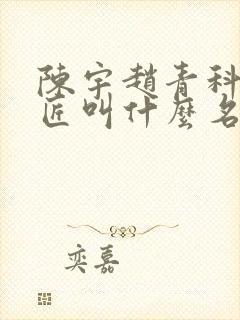 陳宇趙青科
匠叫什麼名
奕嘉